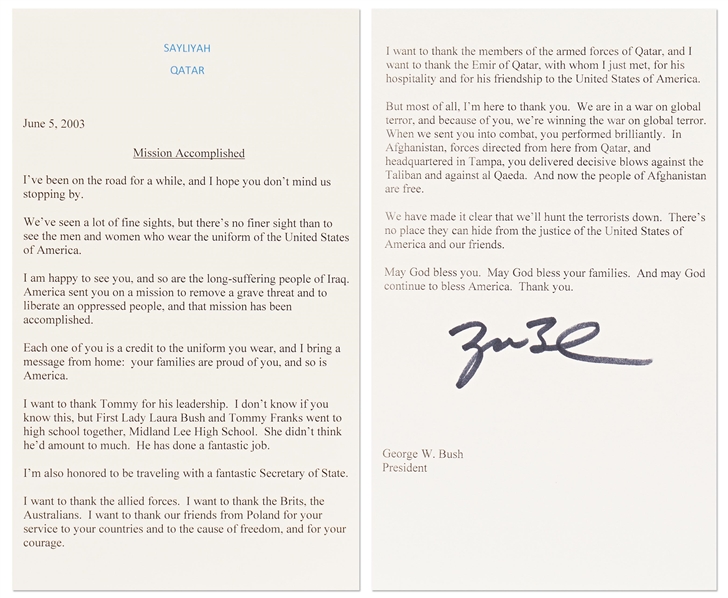 SAYLIYAH
QATAR
June 5, 2003
Mission Accomplished
I've been on the road for a while, and I hope you don't mind us
stopping by.
We've seen a lot of fine sights, but there's no finer sight than to
see the men and women who wear the uniform of the United States
of America.
I am happy to see you, and so are the long-suffering people of Iraq.
America sent you on a mission to remove a grave threat and to
liberate an oppressed people, and that mission has been
accomplished.
Each one of you is a credit to the uniform you wear, and I bring a
message from home:  your families are proud of you, and so is
America.
I want to thank Tommy for his leadership.  I don't know if you
know this, but First Lady Laura Bush and Tommy Franks went to
high school together, Midland Lee High School.  She didn't think
he'd amount to much.  He has done a fantastic job.
I'm also honored to be traveling with a fantastic Secretary of State.
I want to thank the allied forces.  I want to thank the Brits, the
Australians.  I want to thank our friends from Poland for your
service to your countries and to the cause of freedom, and for your
courage.
I want to thank the members of the armed forces of Qatar, and I
want to thank the Emir of Qatar, with whom I just met, for his
hospitality and for his friendship to the United States of America.
But most of all, I'm here to thank you.  We are in a war on global
terror, and because of you, we're winning the war on global terror.
When we sent you into combat, you performed brilliantly.  In
Afghanistan, forces directed from here from Qatar, and
headquartered in Tampa, you delivered decisive blows against the
Taliban and against al Qaeda.  And now the people of Afghanistan
are free.
We have made it clear that we'll hunt the terrorists down.  There's
no place they can hide from the justice of the United States of
America and our friends.
May God bless you.  May God bless your families.  And may God
continue to bless America.  Thank you.
George W. Bush
President